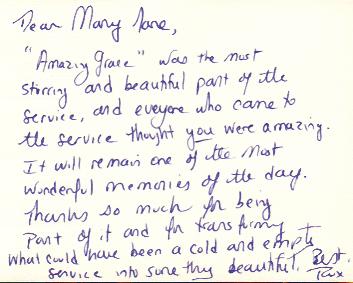 Dear Mary Jane,
"Amazing Grace" was the most
stirring and beautiful part of the
service, and everyone who came to
the service thought you were amazing.
It will remain one of the most
wonderful memories of the day.
Thanks so much for being
part of it and for transforming
what could have been a cold and empty
service into something beautiful. Best.